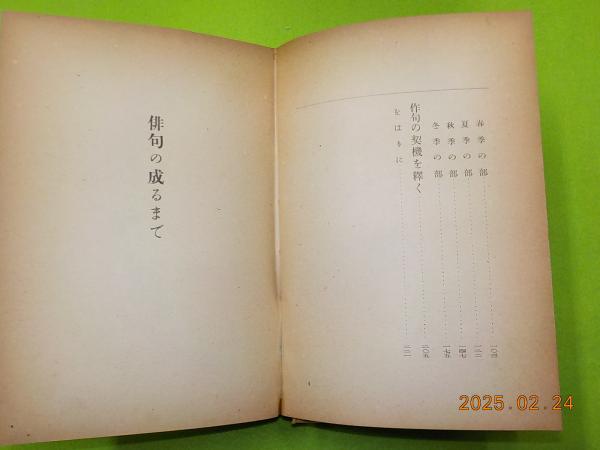 春季の部
夏季の部
秋季の部 一四七
冬季の部 一七五
作句の契機を釋く 二〇五
をはりに
俳句の成るまで
2025.02.24